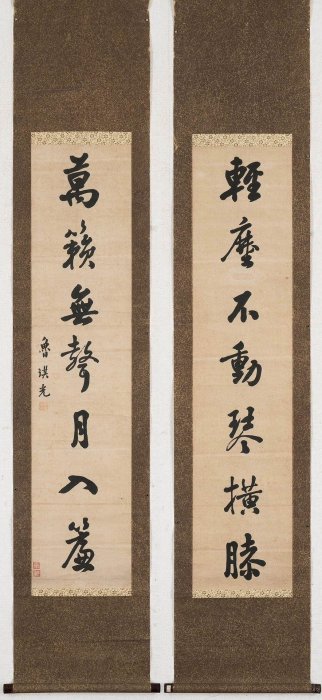 輕塵不動琴橫膝
萬籟無聲月入簾
魯琪光